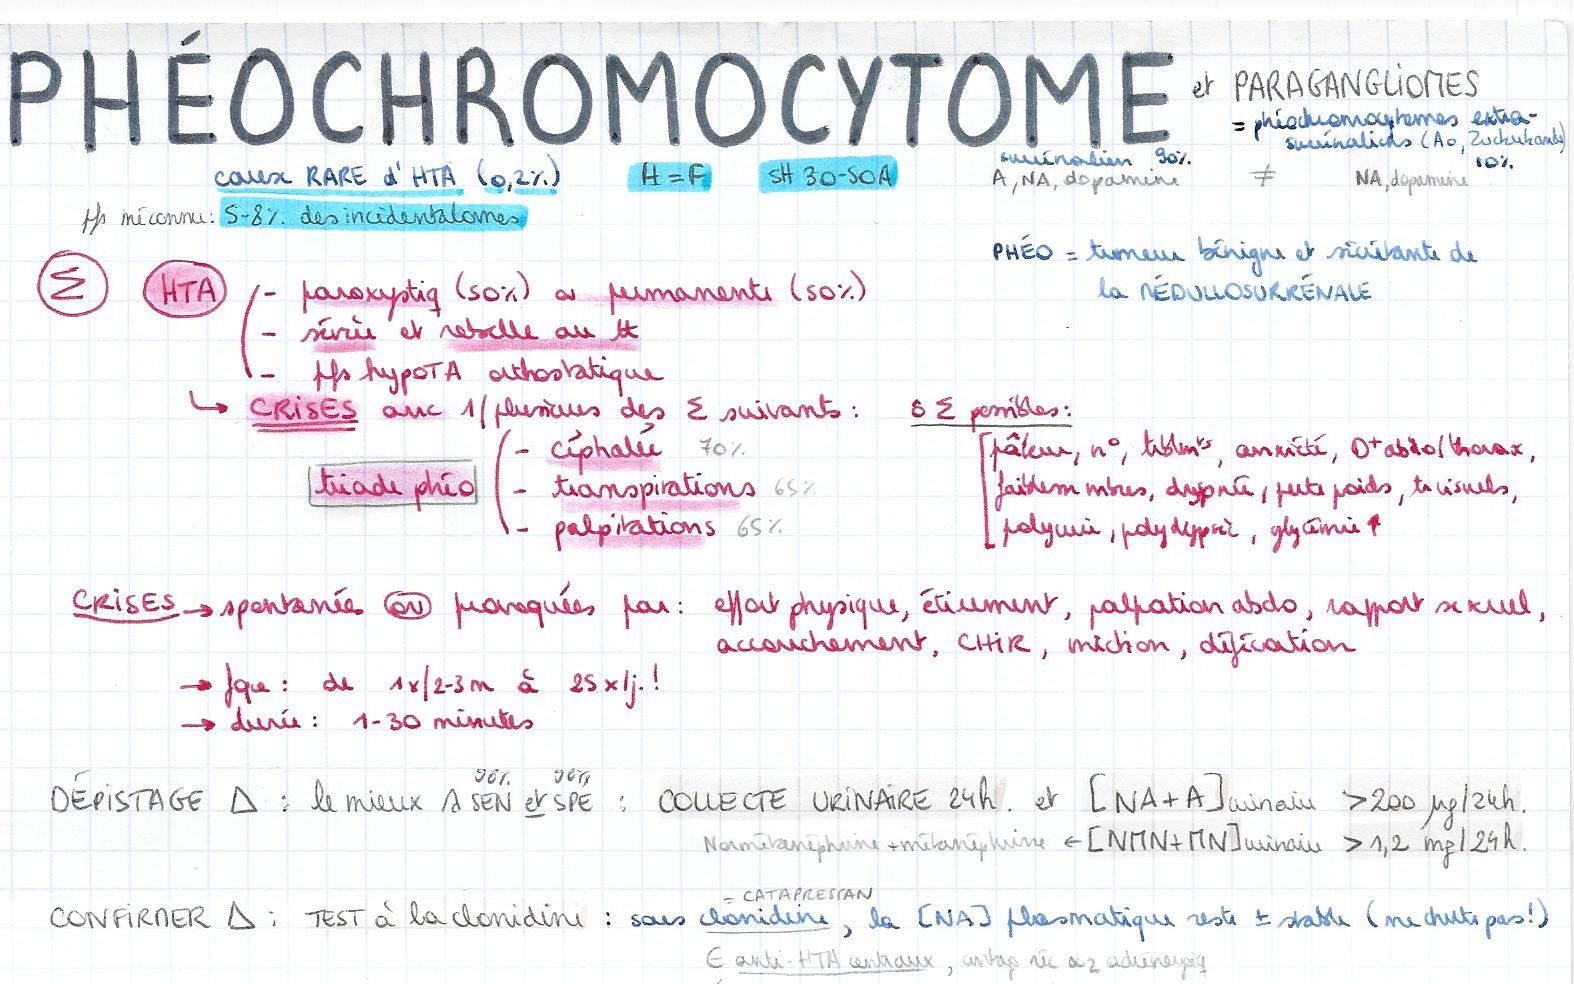 PHÉOCHROMOCYTOME et PARAGANGLIOMES
= phéochromocytomes extra-
surrénaliens (Ao, Zuckerkandl)
10%
surrénalien 90%
A, NA, dopamine ≠ NA, dopamine
cause RARE d'HTA (0,2%) H = F st 30-50A
pfs méconnu: 5-8% des incidentalomes
PHÉO = tumeur bénigne et sécrétante de
la MÉDULLOSURRÉNALE
Σ HTA - paroxystiq (50%) ou permanente (50%)
- sévère et rebelle au tt
- pfs hypoTA orthostatique
↳ CRISES avec 1/plusieurs des Σ suivants :
triade phéo
- céphalée 70%
- transpirations 65%
- palpitations 65%
δ Σ possibles:
pâleur, n°, tremblmts, anxiété, D+ abdo/thorax,
faiblesse mbres, dyspnée, perte poids, tr visuels,
polyurie, polydypsie, glycémie ↑
CRISES → spontanées ou provoquées par : effort physique, étirement, palpation abdo, rapport sexuel,
accouchement, CHIR, miction, défécation
→ fqce : de 1x/2-3m à 25x/j.!
→ durée : 1-30 minutes
96% 96%
DÉPISTAGE Δ : le mieux SEN et SPÉ : COLLECTE URINAIRE 24h. et [NA+A]urinaire >200 µg/24h.
Normétanéphrine + métanéphrine ← [NMN+MN]urinaire > 1,2 mg/24h.
= CATAPRESSAN
CONFIRMER Δ : TEST à la clonidine : sous clonidine, la [NA] plasmatique reste ± stable (ne chute pas!)
∈ anti-HTA centraux, antag réc α2 adrénergiq